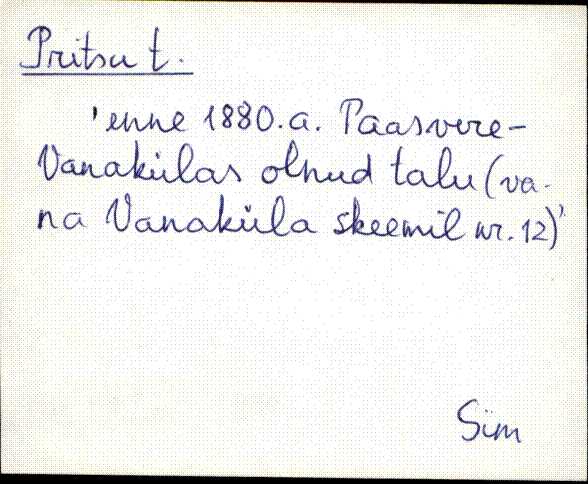 Pritsu t.
'enne 1880.a. Paasvere-
Vanakülas olnud talu (va-
na Vanaküla skeemil nr. 12)'
Sim